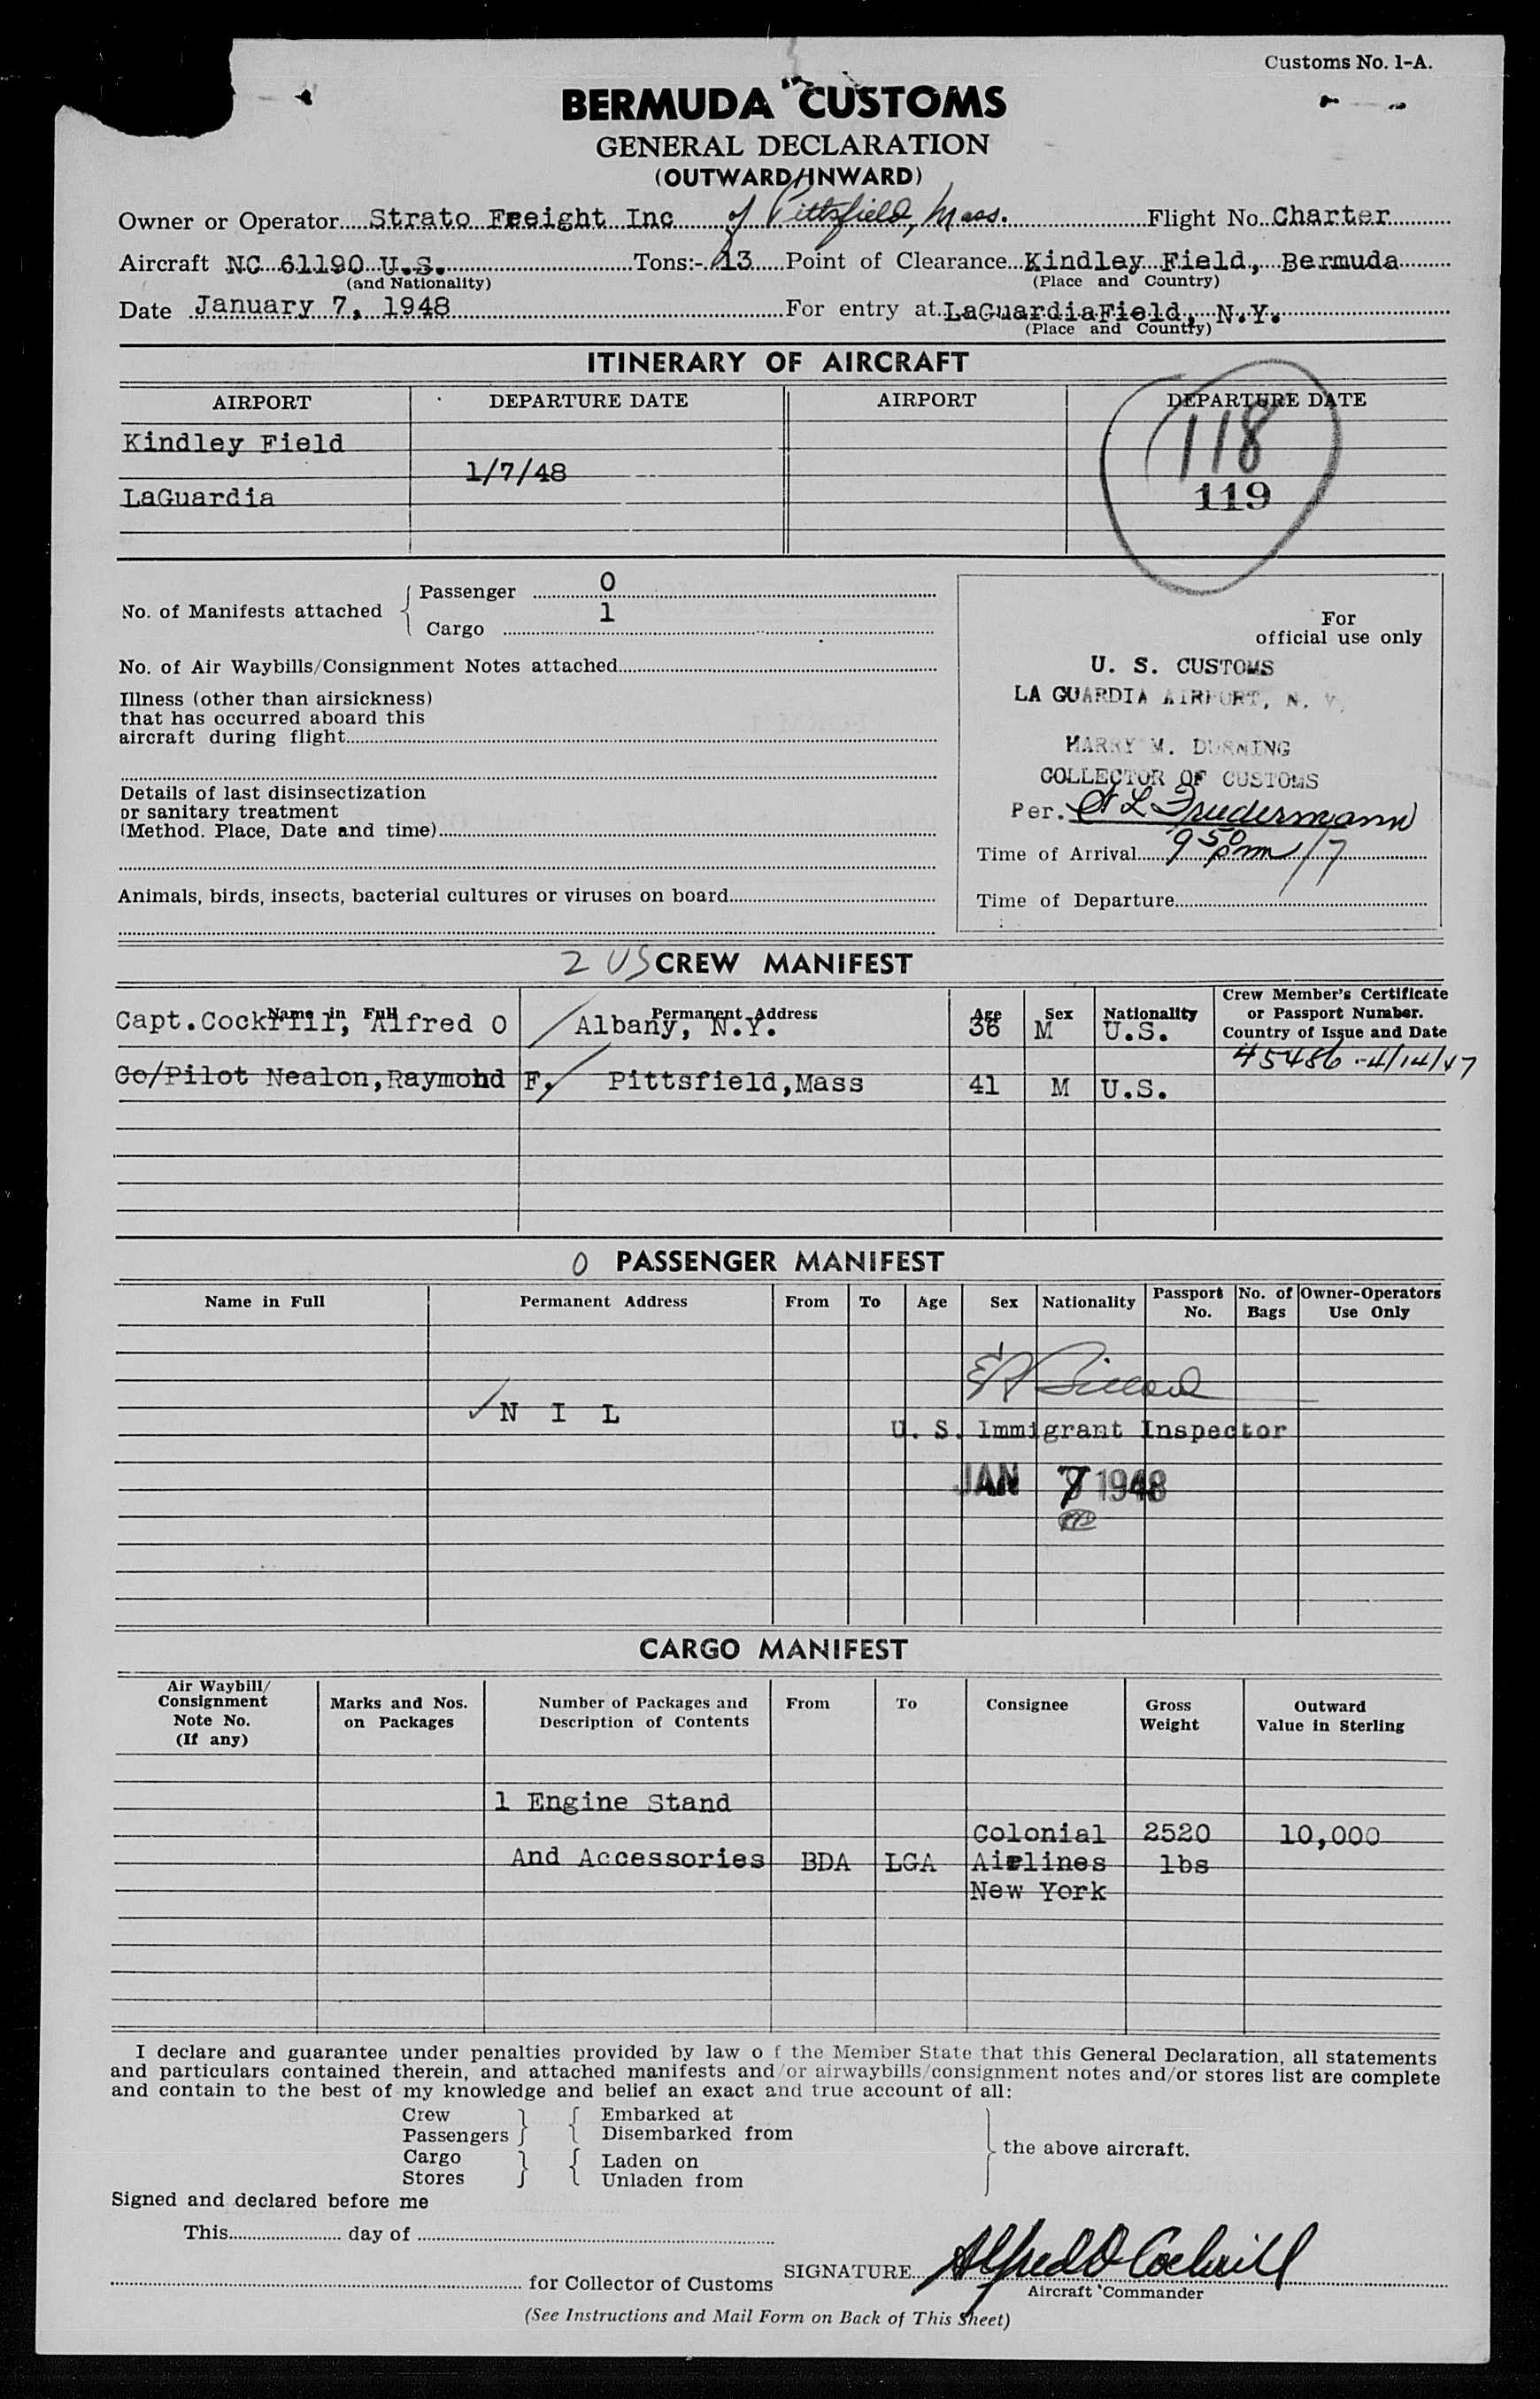 Customs No. 1-A.
BERMUDA CUSTOMS
GENERAL DECLARATION
(OUTWARD/INWARD)
Owner or Operator Strato Freight Inc of Pittsfield, Mass. Flight No. Charter
Aircraft NC 61190 U.S. Tons:- 13 Point of Clearance Kindley Field, Bermuda
(and Nationality) (Place and Country)
Date January 7, 1948 For entry at LaGuardiaField, N.Y.
(Place and Country)
ITINERARY OF AIRCRAFT
AIRPORT DEPARTURE DATE AIRPORT DEPARTURE DATE
118
Kindley Field
1/7/48
LaGuardia
119
No. of Manifests attached { Passenger 0
Cargo 1
For
official use only
No. of Air Waybills/Consignment Notes attached
U. S. CUSTOMS
LA GUARDIA AIRPORT, N. Y.
Illness (other than airsickness)
that has occurred aboard this
aircraft during flight
HARRY M. DURNING
COLLECTOR OF CUSTOMS
Details of last disinsectization
or sanitary treatment
(Method. Place, Date and time)
Per.
Time of Arrival 9 50 pm 1/7
Animals, birds, insects, bacterial cultures or viruses on board
Time of Departure
2 US CREW MANIFEST
Name in Full Permanent Address Age Sex Nationality Crew Member's Certificate
or Passport Number.
Country of Issue and Date
Capt.Cockrill, Alfred O / Albany, N.Y. 36 M U.S.
45486 -4/14/47
Co/Pilot Nealon,Raymond F. / Pittsfield,Mass 41 M U.S.
0 PASSENGER MANIFEST
Name in Full Permanent Address From To Age Sex Nationality Passport No. No. of Bags Owner-Operators Use Only
✓ N I L
U. S. Immigrant Inspector
JAN 7 1948
CARGO MANIFEST
Air Waybill/
Consignment
Note No.
(If any)
Marks and Nos.
on Packages
Number of Packages and
Description of Contents
From To Consignee Gross
Weight
Outward
Value in Sterling
1 Engine Stand
Colonial 2520 10,000
And Accessories BDA LGA Airlines lbs
New York
I declare and guarantee under penalties provided by law o f the Member State that this General Declaration, all statements
and particulars contained therein, and attached manifests and/or airwaybills/consignment notes and/or stores list are complete
and contain to the best of my knowledge and belief an exact and true account of all:
Crew } { Embarked at
Passengers } { Disembarked from
the above aircraft.
Cargo } { Laden on
Stores } { Unladen from
Signed and declared before me
This day of
SIGNATURE Alfred O Cockrill
for Collector of Customs
Aircraft Commander
(See Instructions and Mail Form on Back of This Sheet)